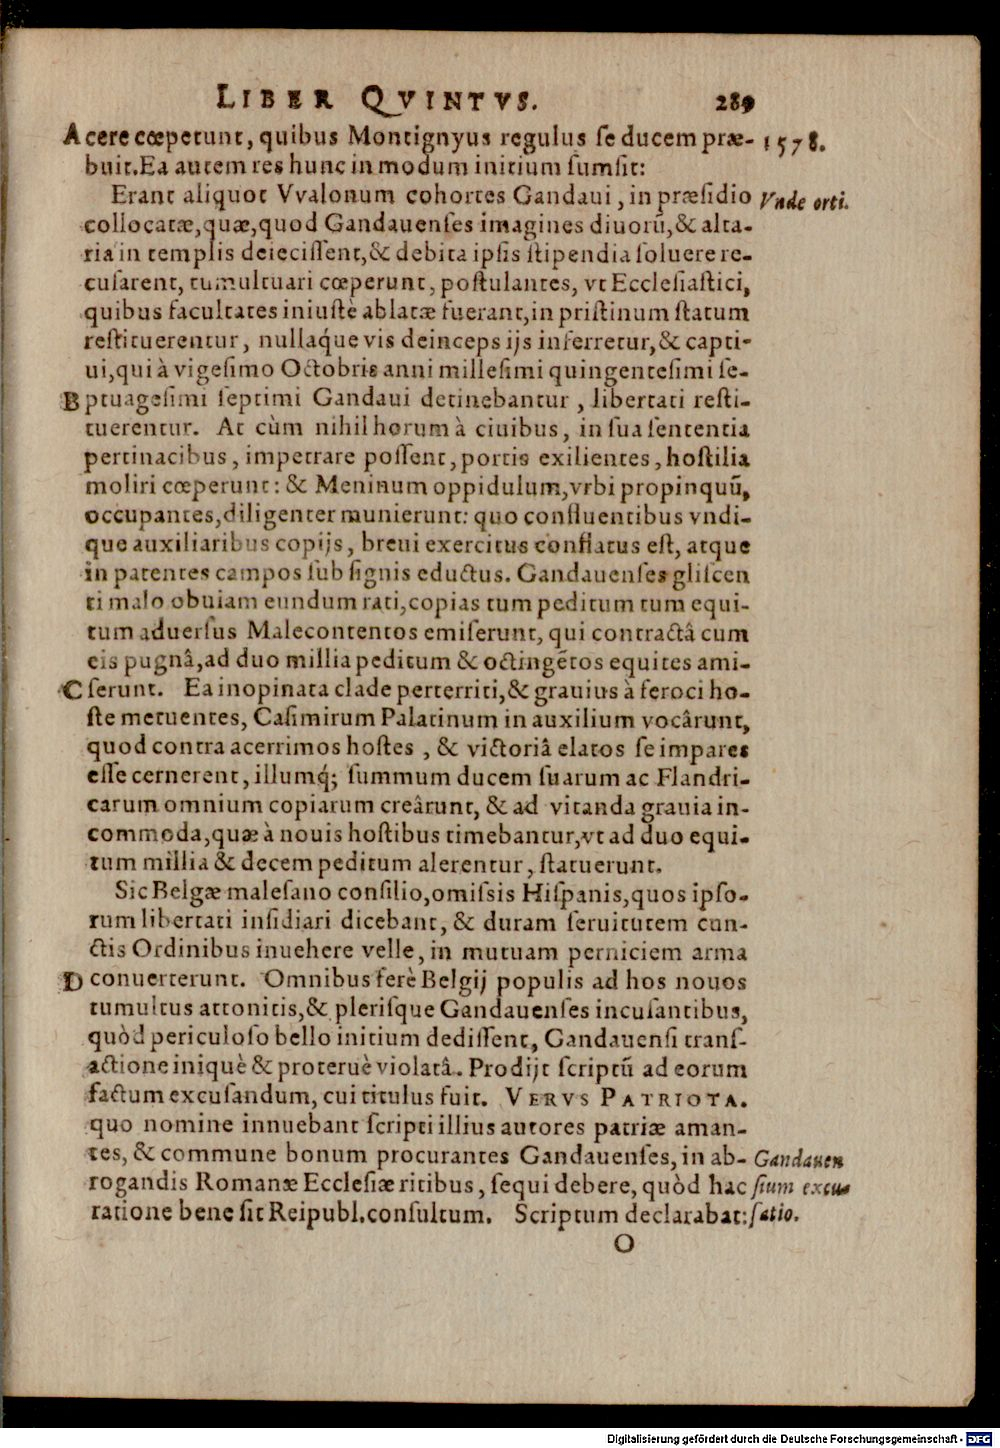 LIBER QVINTVS. 289
A cere cœperunt, quibus Montignyus regulus ſe ducem præ- 1578.
buit. Ea autem res hunc in modum initium ſumſit:
Erant aliquot Vvalonum cohortes Gandaui, in præſidio Vnde orti.
collocatæ, quæ, quod Gandauenſes imagines diuorũ, & alta-
ria in templis deieciſſent, & debita ipſis ſtipendia ſoluere re-
cuſarent, tumultuari cœperunt, poſtulantes, vt Eccleſiaſtici,
quibus facultates iniuſtè ablatæ fuerant, in priſtinum ſtatum
reſtituerentur, nullaq́ue vis deinceps ijs inferretur, & capti-
ui, qui à vigeſimo Octobris anni milleſimi quingenteſimi ſe-
B ptuageſimi ſeptimi Gandaui detinebantur, libertati reſti-
tuerentur. At cùm nihil horum à ciuibus, in ſua ſententia
pertinacibus, impetrare poſſent, portis exilientes, hoſtilia
moliri cœperunt: & Meninum oppidulum, vrbi propinquũ,
occupantes, diligenter munierunt: quo confluentibus vndi-
que auxiliaribus copijs, breui exercitus conflatus eſt, atque
in patentes campos ſub ſignis eductus. Gandauenſes gliſcen
ti malo obuiam eundum rati, copias tum peditum tum equi-
tum aduerſus Malecontentos emiſerunt, qui contractâ cum
eis pugnâ, ad duo millia peditum & octingẽtos equites ami-
C ſerunt. Ea inopinata clade perterriti, & grauius à feroci ho-
ſte metuentes, Caſimirum Palatinum in auxilium vocârunt,
quod contra acerrimos hoſtes, & victoriâ elatos ſe impares
eſſe cernerent, illumq́; ſummum ducem ſuarum ac Flandri-
carum omnium copiarum creârunt, & ad vitanda grauia in-
commoda, quæ à nouis hoſtibus timebantur, vt ad duo equi-
tum millia & decem peditum alerentur, ſtatuerunt.
Sic Belgæ maleſano conſilio, omiſsis Hiſpanis, quos ipſo-
rum libertati inſidiari dicebant, & duram ſeruitutem cun-
ctis Ordinibus inuehere velle, in mutuam perniciem arma
D conuerterunt. Omnibus ferè Belgij populis ad hos nouos
tumultus attonitis, & pleriſque Gandauenſes incuſantibus,
quòd periculoſo bello initium dediſſent, Gandauenſi tranſ-
actione iniquè & proteruè violatâ. Prodijt ſcriptũ ad eorum
factum excuſandum, cui titulus fuit. VERVS PATRIOTA.
quo nomine innuebant ſcripti illius autores patriæ aman-
tes, & commune bonum procurantes Gandauenſes, in ab- Gandauen
rogandis Romanæ Eccleſiæ ritibus, ſequi debere, quòd hac ſium excu
ratione bene ſit Reipubl. conſultum. Scriptum declarabat: ſatio.
O
Digitalisierung gefördert durch die Deutsche Forschungsgemeinschaft - DFG